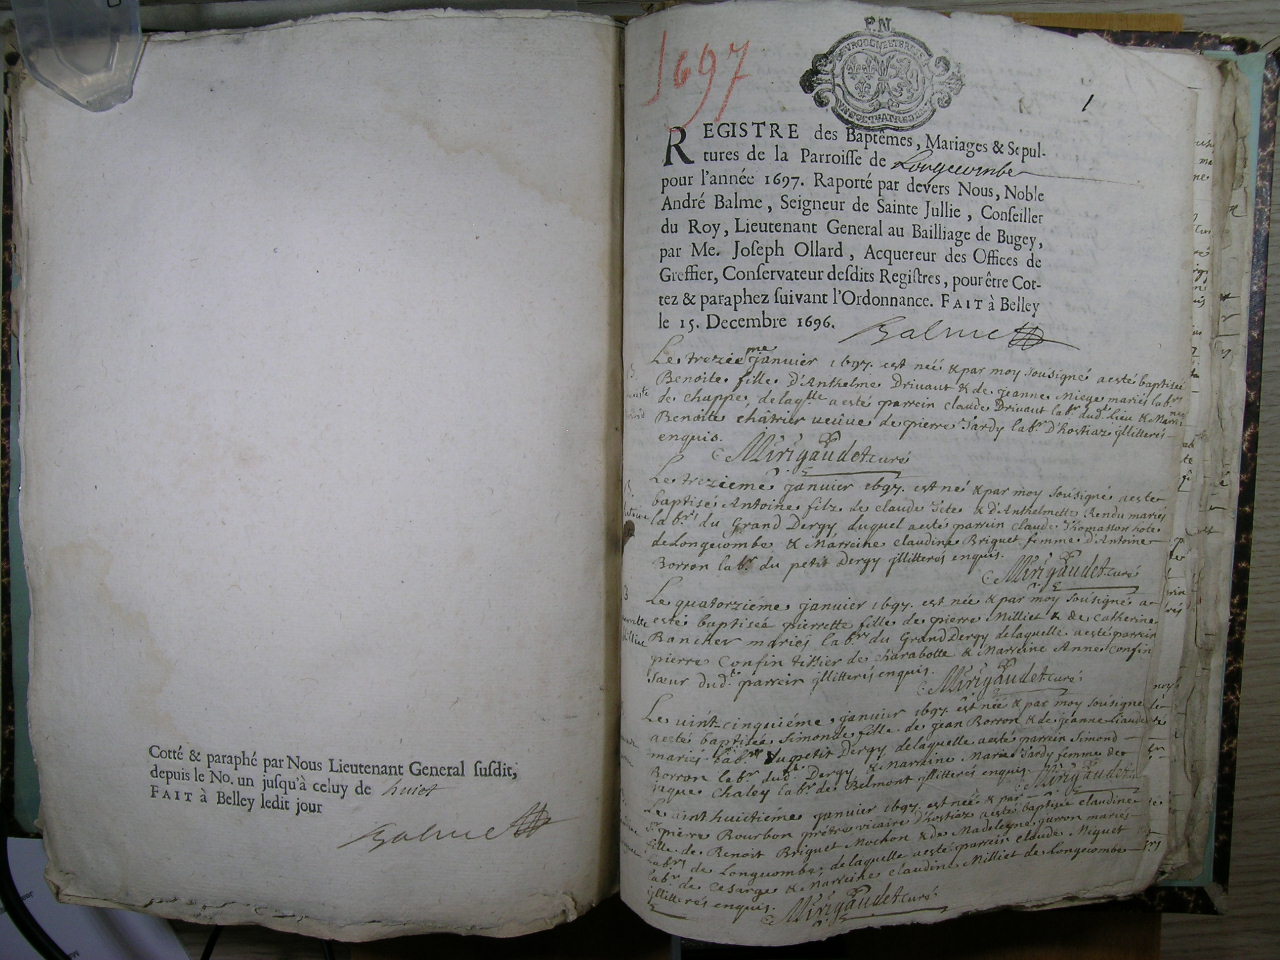 Cotté & paraphé par Nous Lieutenant General susdit,
depuis le No. un jusqu'à celuy de huict
FAIT à Belley ledit jour
Balme
1697
F.N.
1
REGISTRE des Baptêmes, Mariages & Sepul-
tures de la Parroisse de Longecombe
pour l'année 1697. Raporté par devers Nous, Noble
André Balme, Seigneur de Sainte Jullie, Conseiller
du Roy, Lieutenant General au Bailliage de Bugey,
par Me. Joseph Ollard, Acquereur des Offices de
Greffier, Conservateur desdits Registres, pour être Cot-
tez & paraphez suivant l'Ordonnance. FAIT à Belley
le 15. Decembre 1696.
Balme
Le trezeéme janvier 1697. est neé & par moy sousigné a esté baptisée
Benoite fille d'Anthelme Drivaut & de jeanne Miege mariés labrs
de chappe, delaqlle a esté parrein claude Drivaut labr dudt lieu & Marne
Benoite châtrer veüve de pierre Tardy labr d'hostiaz jllitterés
enquis. Mirigaudet curé
Le trezéeme janvier 1697. est né & par moy sousigné a esté
baptisé Antoine filz de claude & d'Anthelmette Rendu mariés
labrs du Grand Dergy duquel a esté parrein claude Thomasson hote
de Longecombe & Marreine claudine Briguet femme d'Antoine
Borron labr du petit Dergy jllitterés enquis.
Mirigaudet curé
3
Le quatorziéme janvier 1697. est neé & par moy sousigné a
esté baptiseé pierrette fille de pierre Milliet & de Catherine
Bancher mariés labrs du Grand Dergy delaquelle a esté parrein
pierre Confin tissier de charabotte & Marreine Anne Confin
sœur dudt parrein jllitterés enquis. Mirigaudet curé
Le vint-cinquiéme janvier 1697. est neé & par moy sousigné
a esté baptiseé Simonde fille de jean Borron & de jeanne
mariés labrs du petit Dergy delaquelle a esté parrein Simond
Borron labr dudt Dergy & Marreine Marie Tardy femme de
jaque Chaley labr de Belmont jllitterés enquis. Mirigaudet
Le vint huitiéme janvier 1697. est neé & par
Sr pierre Bourbon prêtre vicaire d'hostiaz a esté baptiseé claudine
fille de Benoit Briguet Mochon & de Madeleyne juvon mariés
labrs de Longecombe, delaquelle a esté parrein claude Miguet
labr de Cesarge & Marreine claudine Milliet de Longecombe
jllitterés enquis. Mirigaudet curé